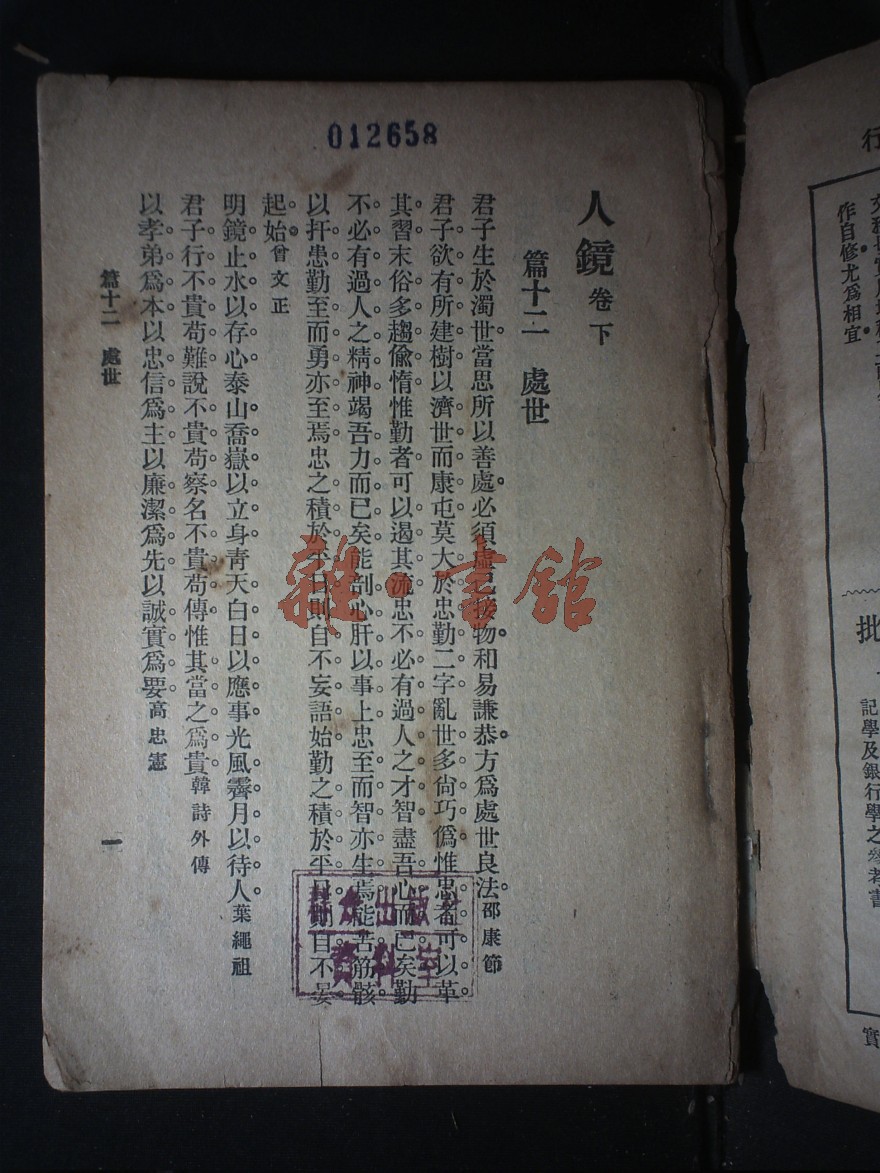 012658
人鏡 卷下
篇十二 處世
君子生於濁世當思所以善處必須虛己接物和易謙恭方爲處世良法。邵康節
君子欲有所建樹以濟世而康屯莫大於忠勤二字亂世多尙巧僞惟忠者可以革
其習末俗多趨偸惰惟勤者可以遏其流忠不必有過人之才智盡吾心而已矣勤
不必有過人之精神竭吾力而已矣能剖心肝以事上忠至而智亦生焉能苦筋骸
以扞患勤至而勇亦至焉忠之積於平日則自不妄語始勤之積於平日則自不晏
起始。曾文正
明鏡止水以存心泰山喬嶽以立身靑天白日以應事光風霽月以待人。葉繩祖
君子行不貴苟難說不貴苟察名不貴苟傳惟其當之爲貴 韓詩外傳
以孝弟爲本以忠信爲主以廉潔爲先以誠實爲要 高忠憲
篇十二 處世 一
雜·書館
羣众出版社
資料室
作自修尤爲相宜
批
記學及銀行學之參考書
行
實